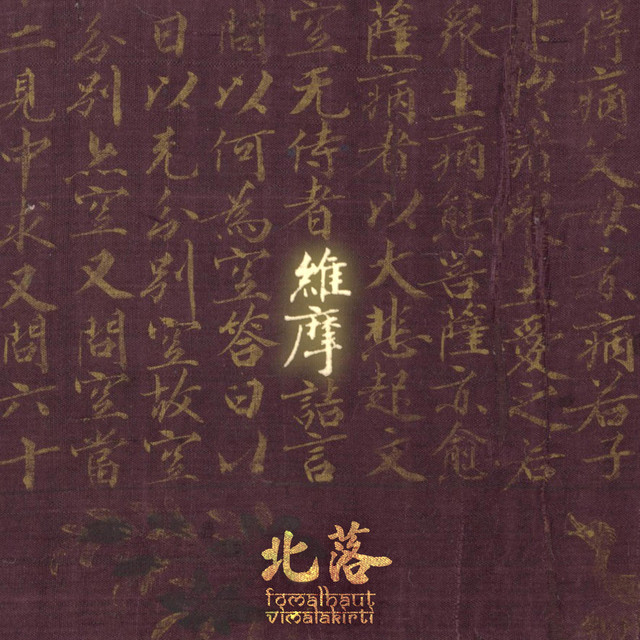 得病父母亦病若子
愛之若
眾生病愈菩薩亦愈
薩病者以大悲起文
空无侍者維摩詰言
問以何為空答曰以
曰以无分別空故空
分別亦空又問空當
二見中求又問六十
北落
fomalhaut
vimalakirti